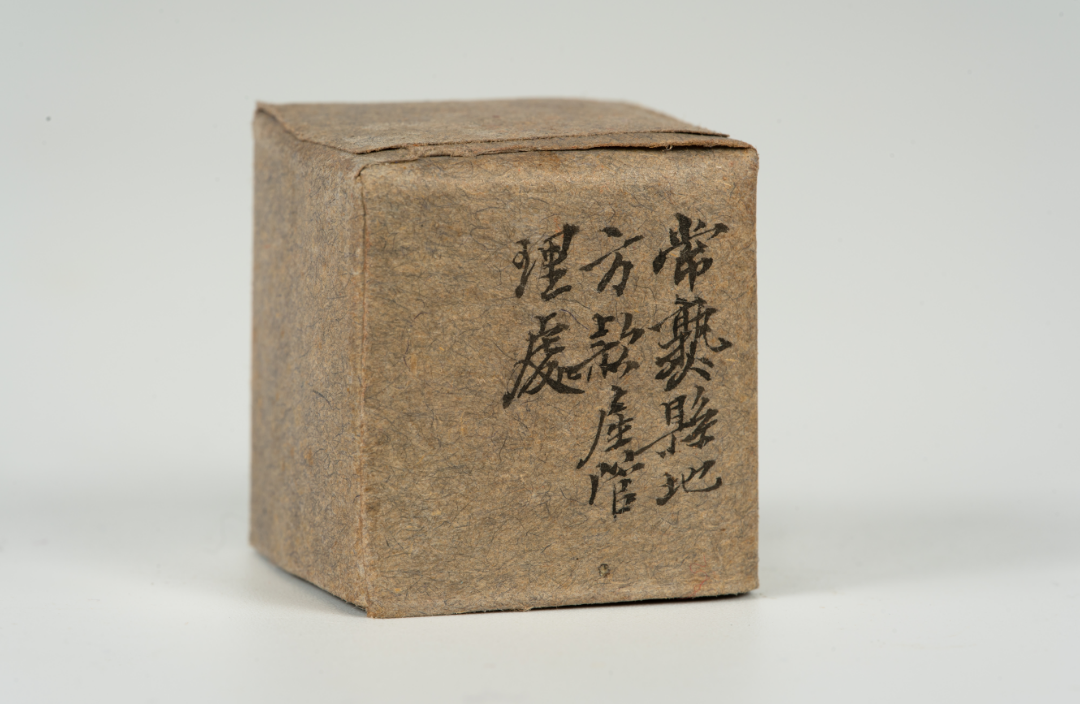 常熟縣地
方款產管
理處